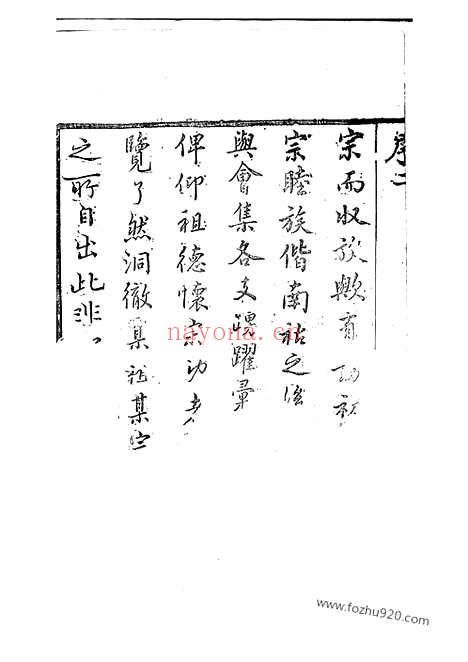 序二
宗而收族歟有
宗睦族偕南祉之後
與會集各支踴躍彙
俾仰祖德懷宗功者
覽了然洞徹某祖某宗
之所自出此非
nayona.cn
www.fozhu920.com